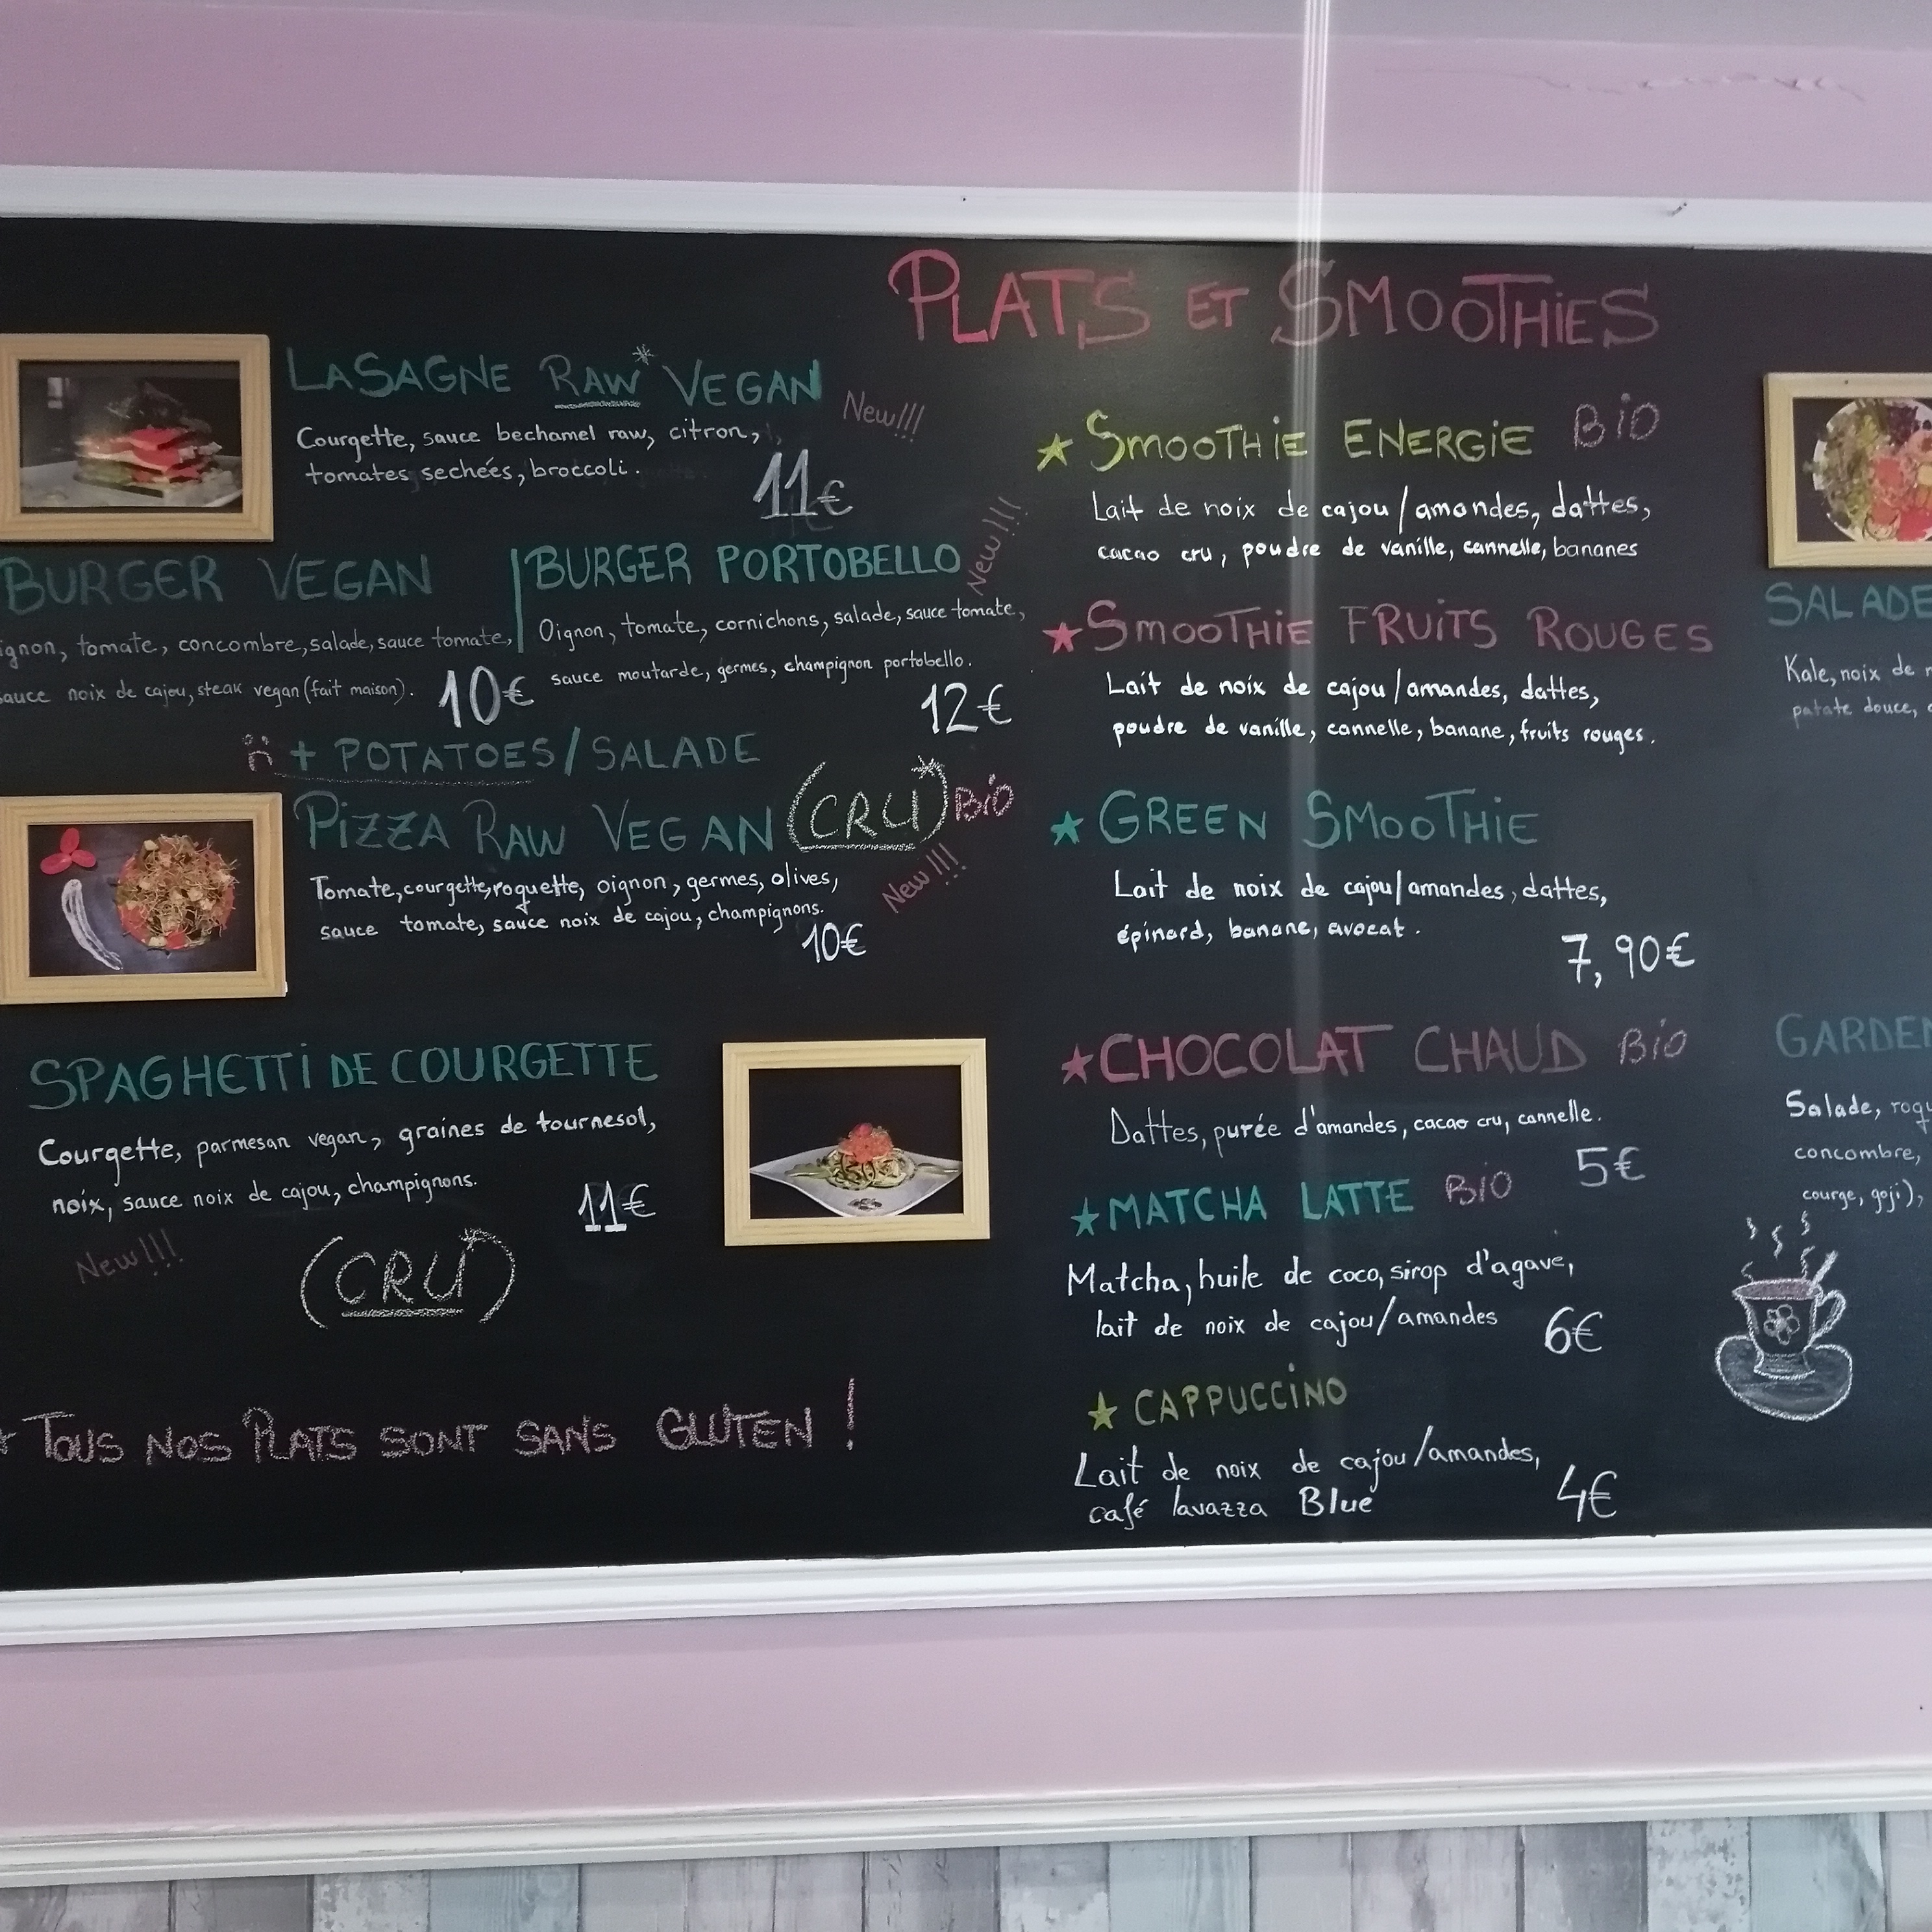 PLATS ET SMOOTHIES
LASAGNE RAW* VEGAN
New!!!
Courgette, sauce bechamel raw, citron,
tomates sechées, broccoli.
11€
BURGER VEGAN
ignon, tomate, concombre, salade, sauce tomate,
sauce noix de cajou, steak vegan (fait maison).
10€
BURGER PORTOBELLO
New!!!
Oignon, tomate, cornichons, salade, sauce tomate,
sauce moutarde, germes, champignon portobello.
12€
+ POTATOES/SALADE
PiZZA RAW VEGAN (CRU)* BiO
New!!!
Tomate, courgette, roquette, oignon, germes, olives,
sauce tomate, sauce noix de cajou, champignons.
10€
SPAGHETTi DE COURGETTE
Courgette, parmesan vegan, graines de tournesol,
noix, sauce noix de cajou, champignons.
11€
New!!!
(CRU*)
TOUS NOS PLATS SONT SANS GLUTEN !
★ SMOOTHiE ENERGiE BiO
Lait de noix de cajou/amandes, dattes,
cacao cru, poudre de vanille, cannelle, bananes
★ SMOOTHiE FRUiTS ROUGES
Lait de noix de cajou/amandes, dattes,
poudre de vanille, cannelle, banane, fruits rouges.
★ GREEN SMOOTHiE
Lait de noix de cajou/amandes, dattes,
épinard, banane, avocat.
7,90€
★ CHOCOLAT CHAUD BiO
Dattes, purée d'amandes, cacao cru, cannelle.
5€
★ MATCHA LATTE BiO
Matcha, huile de coco, sirop d'agave,
lait de noix de cajou/amandes
6€
★ CAPPUCCiNO
Lait de noix de cajou/amandes,
café lavazza Blue
4€
SALADE
Kale, noix de
patate douce,
GARDEN
Salade, roqu
concombre,
courge, goji),